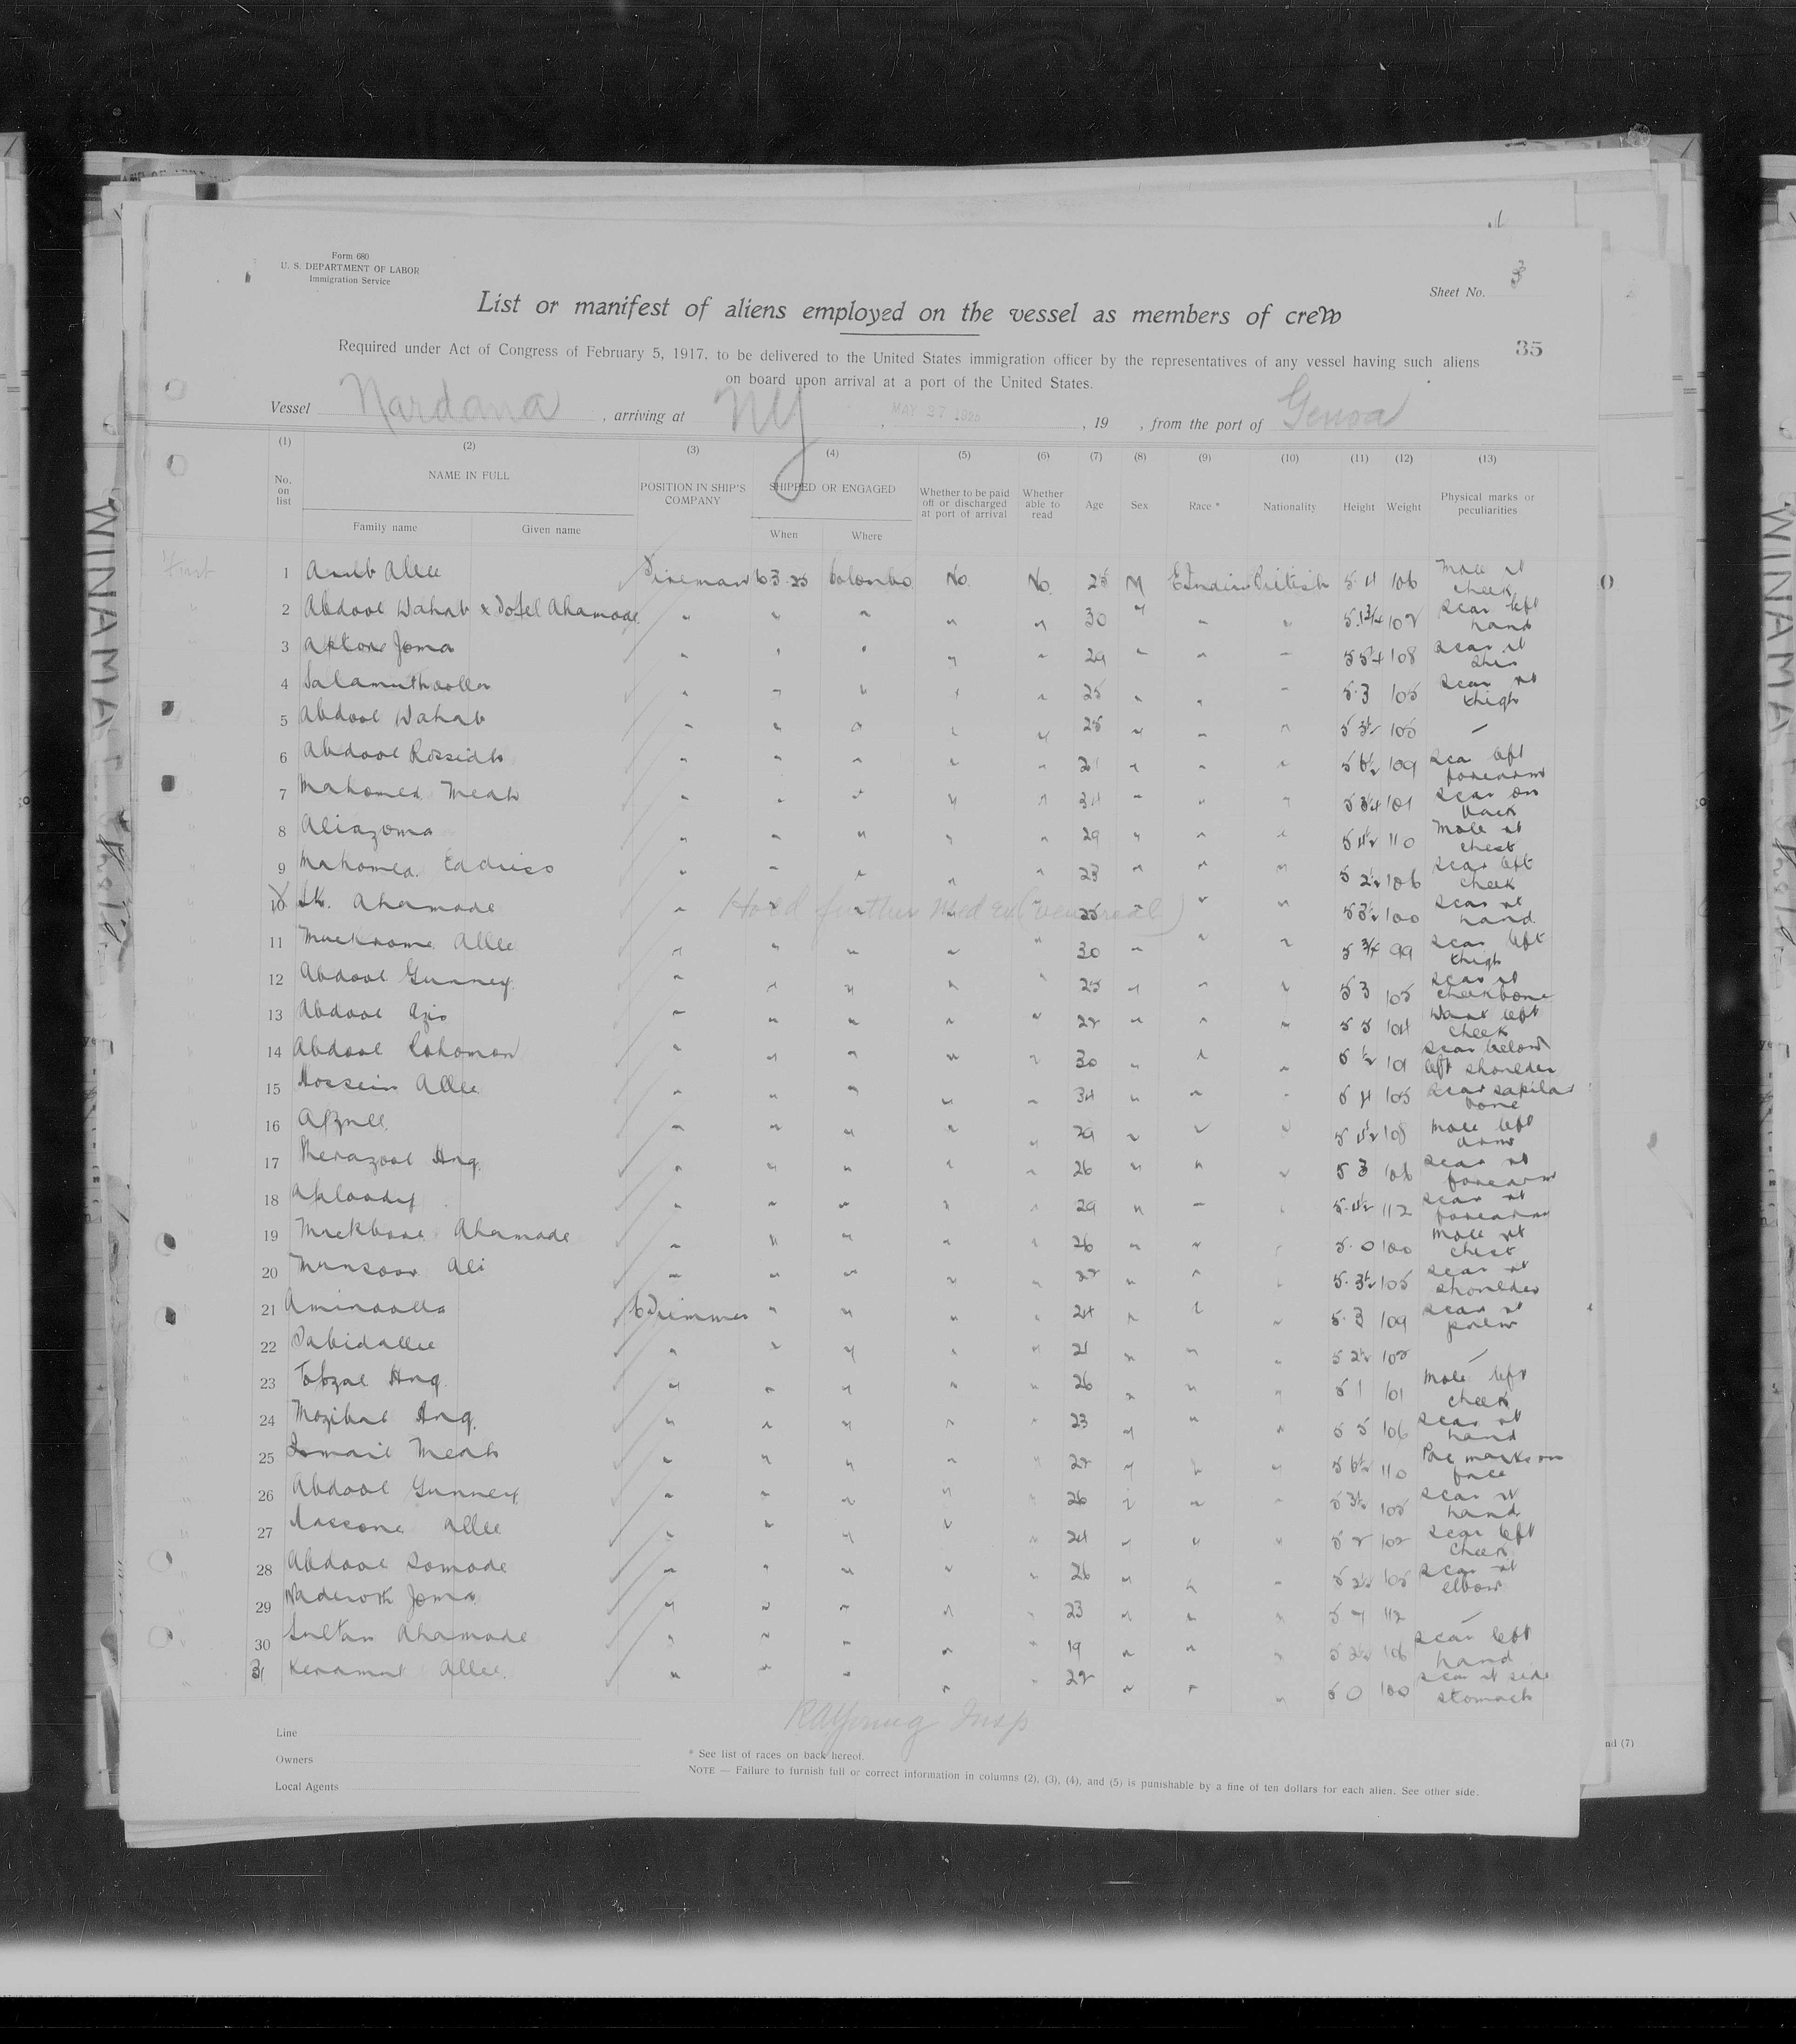 Form 680
U. S. DEPARTMENT OF LABOR
Immigration Service
Sheet No. 3
List or manifest of aliens employed on the vessel as members of crew
35
Required under Act of Congress of February 5, 1917. to be delivered to the United States immigration officer by the representatives of any vessel having such aliens
on board upon arrival at a port of the United States.
Vessel Nardana , arriving at NY , MAY 27 1925 , 19 , from the port of Genoa
(1) (2) (3) (4) (5) (6) (7) (8) (9) (10) (11) (12) (13)
No. on list NAME IN FULL POSITION IN SHIP'S COMPANY SHIPPED OR ENGAGED Whether to be paid off or discharged at port of arrival Whether able to read Age Sex Race * Nationality Height Weight Physical marks or peculiarities
Family name Given name When Where
1 Allee Fireman 6 3 25 Colombo No No 25 M E Indian British 5 4 106 Mole rt cheek
2 Abdool Wahab x Ahamode " " " " " 30 " " " 5.1 3/4 102 Scar left hand
3 Joma " " " " " 29 " " " 108 Scar rt shin
4 " " " " " 25 " " " 5.3 105 Scar rt thigh
5 Abdool Wahab " " " " " 25 " " " 5 3½ 105 –
6 Abdool " " " " " 21 " " " 5 6½ 109 Scar left forearm
7 Mahomed Meah " " " " " 34 " " " 101 Scar on back
8 Aliazoma " " " " " 29 " " " 5 4½ 110 Mole rt chest
9 Mahomed " " " " " 23 " " " 5 2½ 106 Scar left cheek
10 Sk. Ahamode " " " " " 25 " " " 5 3½ 100 Scar rt hand
Hold further Med Ex (venereal)
11 Allee " " " " " 30 " " " 5 3/4 99 Scar left thigh
12 Abdool Gunney " " " " " 25 " " " 5 3 105 Scar rt cheekbone
13 Abdool Azis " " " " " 22 " " " 5 5 104 Wart left cheek
14 Abdool Rohoman " " " " " 30 " " " 5 ½ 101 Scar below left shoulder
15 Hossein Allee " " " " " 34 " " " 5 4 105 Scar bone
16 " " " " " 29 " " " 5 4½ 108 Mole left arm
17 Huq. " " " " " 26 " " " 5 3 106 Scar rt forearm
18 " " " " " 29 " " " 5.4½ 112 Scar rt forearm
19 Ahamode " " " " " 26 " " " 5.0 100 Mole rt chest
20 Munsoor Ali " " " " " 22 " " " 5.3½ 105 Scar rt shoulder
21 Aminoolla C Trimmer " " " " 24 " " " 5.3 109 Scar rt
22 " " " " " 21 " " " 5 2½ 102 –
23 Huq. " " " " " 26 " " " 5 1 101 Mole left cheek
24 Mozibul Huq. " " " " " 23 " " " 5 5 106 Scar rt hand
25 Ismail Meah " " " " " 22 " " " 5 6½ 110 Poc marks on face
26 Abdool Gunney " " " " " 26 " " " 5 3½ 105 Scar rt hand
27 Allee " " " " " 24 " " " 5 2 102 Scar left cheek
28 Abdool Somode " " " " " 26 " " " 5 2½ 105 Scar rt elbow
29 Joma " " " " " 23 " " " 5 7 112 –
30 Sultan Ahamode " " " " " 19 " " " 5 2½ 106 Scar left hand
31 Keramut Allee. " " " " " 22 " " " 5 0 100 Scar rt side stomach
RA Young Insp
Line
Owners
Local Agents
* See list of races on back hereof.
NOTE — Failure to furnish full or correct information in columns (2), (3), (4), and (5) is punishable by a fine of ten dollars for each alien. See other side.
nd (7)
WINAMAC
WINAMA